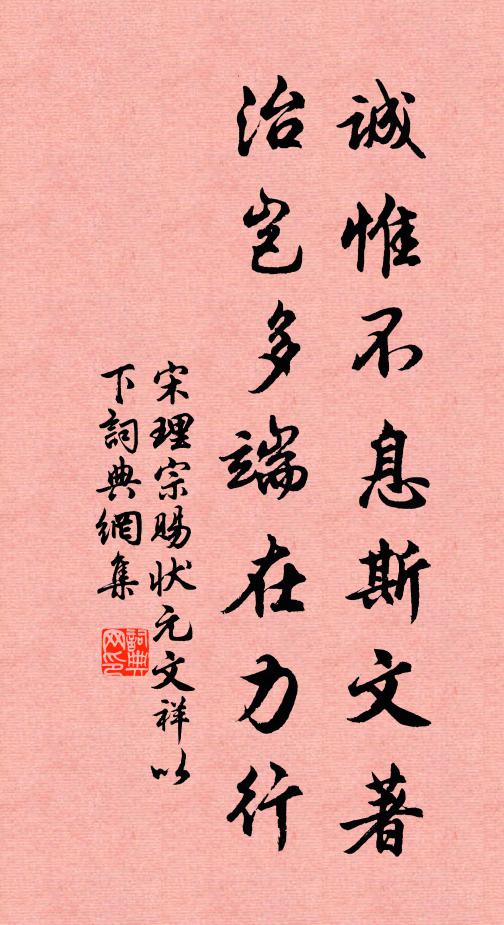 誠惟不息斯文著
治豈多端在力行
宋理宗賜狀元文祥以
下詞典網集
詞典
网印